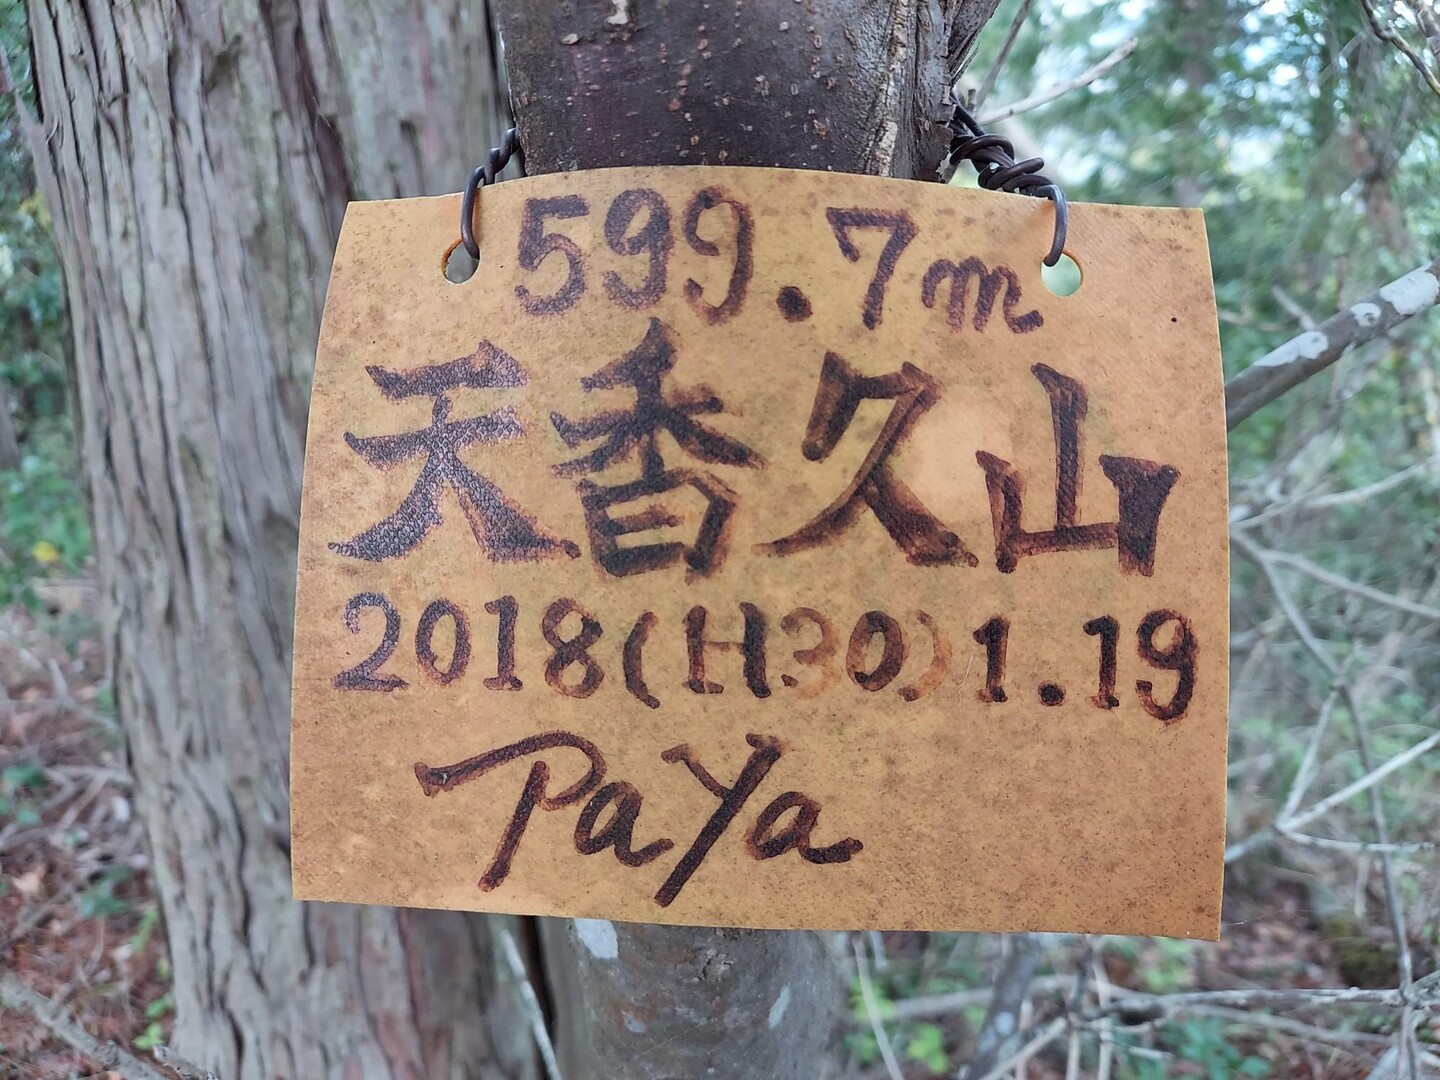 599.7m
天香久山
2018(H30)1.19
PaYa